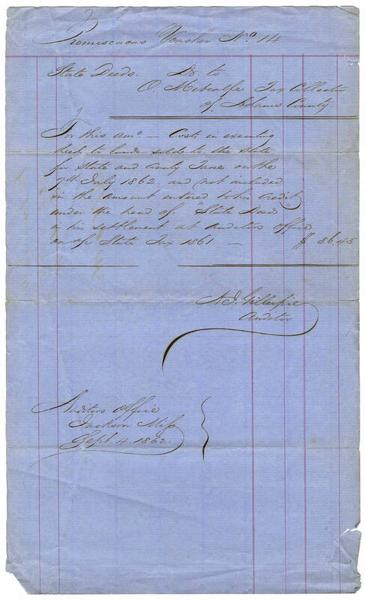 Promiscuous Voucher No 114
State Deeds. Dr. to
O Metcalfe Tax Collector
of Adams County
For this amt — Costs in executing
Deed to lands sold to the State
for State and County Taxes on the
7th July 1862, and not included
in the amount entered to his credit
under the head of "State Deeds"
in his settlement at Auditors Office
on a/c State Tax 1861 — $ 86.45
A. J. Gillespie
Auditor
Auditors Office
Jackson Miss
Sept. 4. 1862.